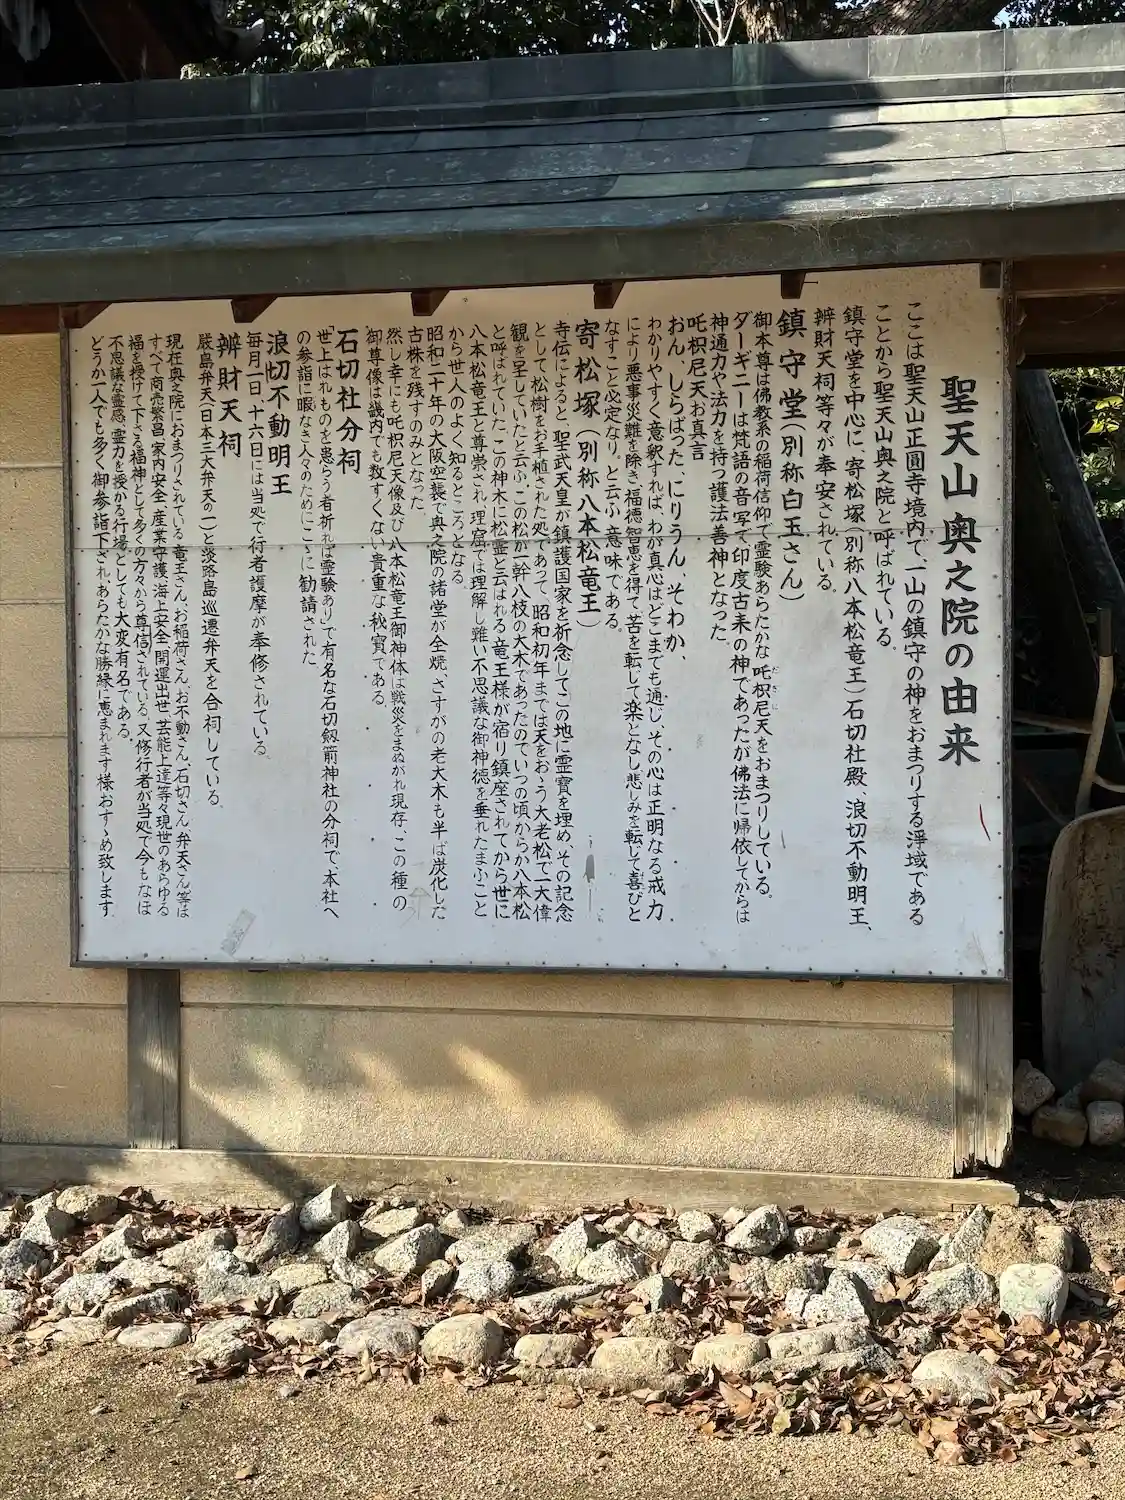 聖天山奥之院の由来
ここは聖天山正圓寺境内で、一山の鎮守の神をおまつりする淨域である
ことから聖天山奥之院と呼ばれている。
鎮守堂を中心に、寄松塚(別称八本松竜王)石切社殿、浪切不動明王、
辨財天祠等々が奉安されている。
鎮守堂(別称白玉さん)
御本尊は佛教系の稲荷信仰で霊験あらたかな吒枳尼天をおまつりしている。
だきに
ダーギニーは梵語の音写で印度古来の神であったが佛法に帰依してからは
神通力や法力を持つ護法善神となった。
吒枳尼天お真言
おん、しらばった、にりうん、そわか、
わかりやすく意釈すれば、わが真心はどこまでも通じ、その心は正明なる戒力
により悪事災難を除き、福徳智恵を得て、苦を転じて楽となし悲しみを転じて喜びと
なすこと必定なり。と云ふ意味である。
寄松塚(別称八本松竜王)
寺伝によると、聖武天皇が鎮護国家を祈念してこの地に霊寶を埋め、その記念
として松樹をお手植された処であって、昭和初年までは天をおゝう大老松で一大偉
観を呈していたと云ふ、この松が一幹八枝の大木であったのでいつの頃からか八本松
と呼ばれていた、この神木に松霊と云はれる竜王様が宿り鎮座されてから世に
八本松竜王と尊崇され、理窟では理解し難い不思議な御神徳を垂れたまふこと
から世人のよく知るところとなる
昭和二十年の大阪空襲で奥之院の諸堂が全焼、さすがの老大木も半ば炭化した
古株を残すのみとなった
然し幸にも吒枳尼天像及び八本松竜王御神体は戦災をまぬがれ現存、この種の
御尊像は畿内でも数すくない貴重な秘寶である。
石切社分祠
「世上はれものを患らう者祈れば霊験あり」で有名な石切劔箭神社の分祠で、本社へ
の参詣に暇なき人々のためにこゝに勧請された
浪切不動明王
毎月一日、十六日には当処で行者護摩が奉修されている。
辨財天祠
嚴島弁天(日本三大弁天の一)と淡路島巡遷弁天を合祠している。
現在奥之院におまつりされている竜王さん、お稲荷さん、お不動さん、石切さん、弁天さん等は
すべて商売繁昌、家内安全、産業守護、海上安全、開運出世、芸能上達等々現世のあらゆる
福を授けて下さる福神として多くの方々から尊信されている。又修行者が当処で今もなほ
不思議な霊感、霊力を授かる行場としても大変有名である。
どうか一人でも多く御参詣下され、あらたかな勝縁に恵まれます様おすゝめ致します